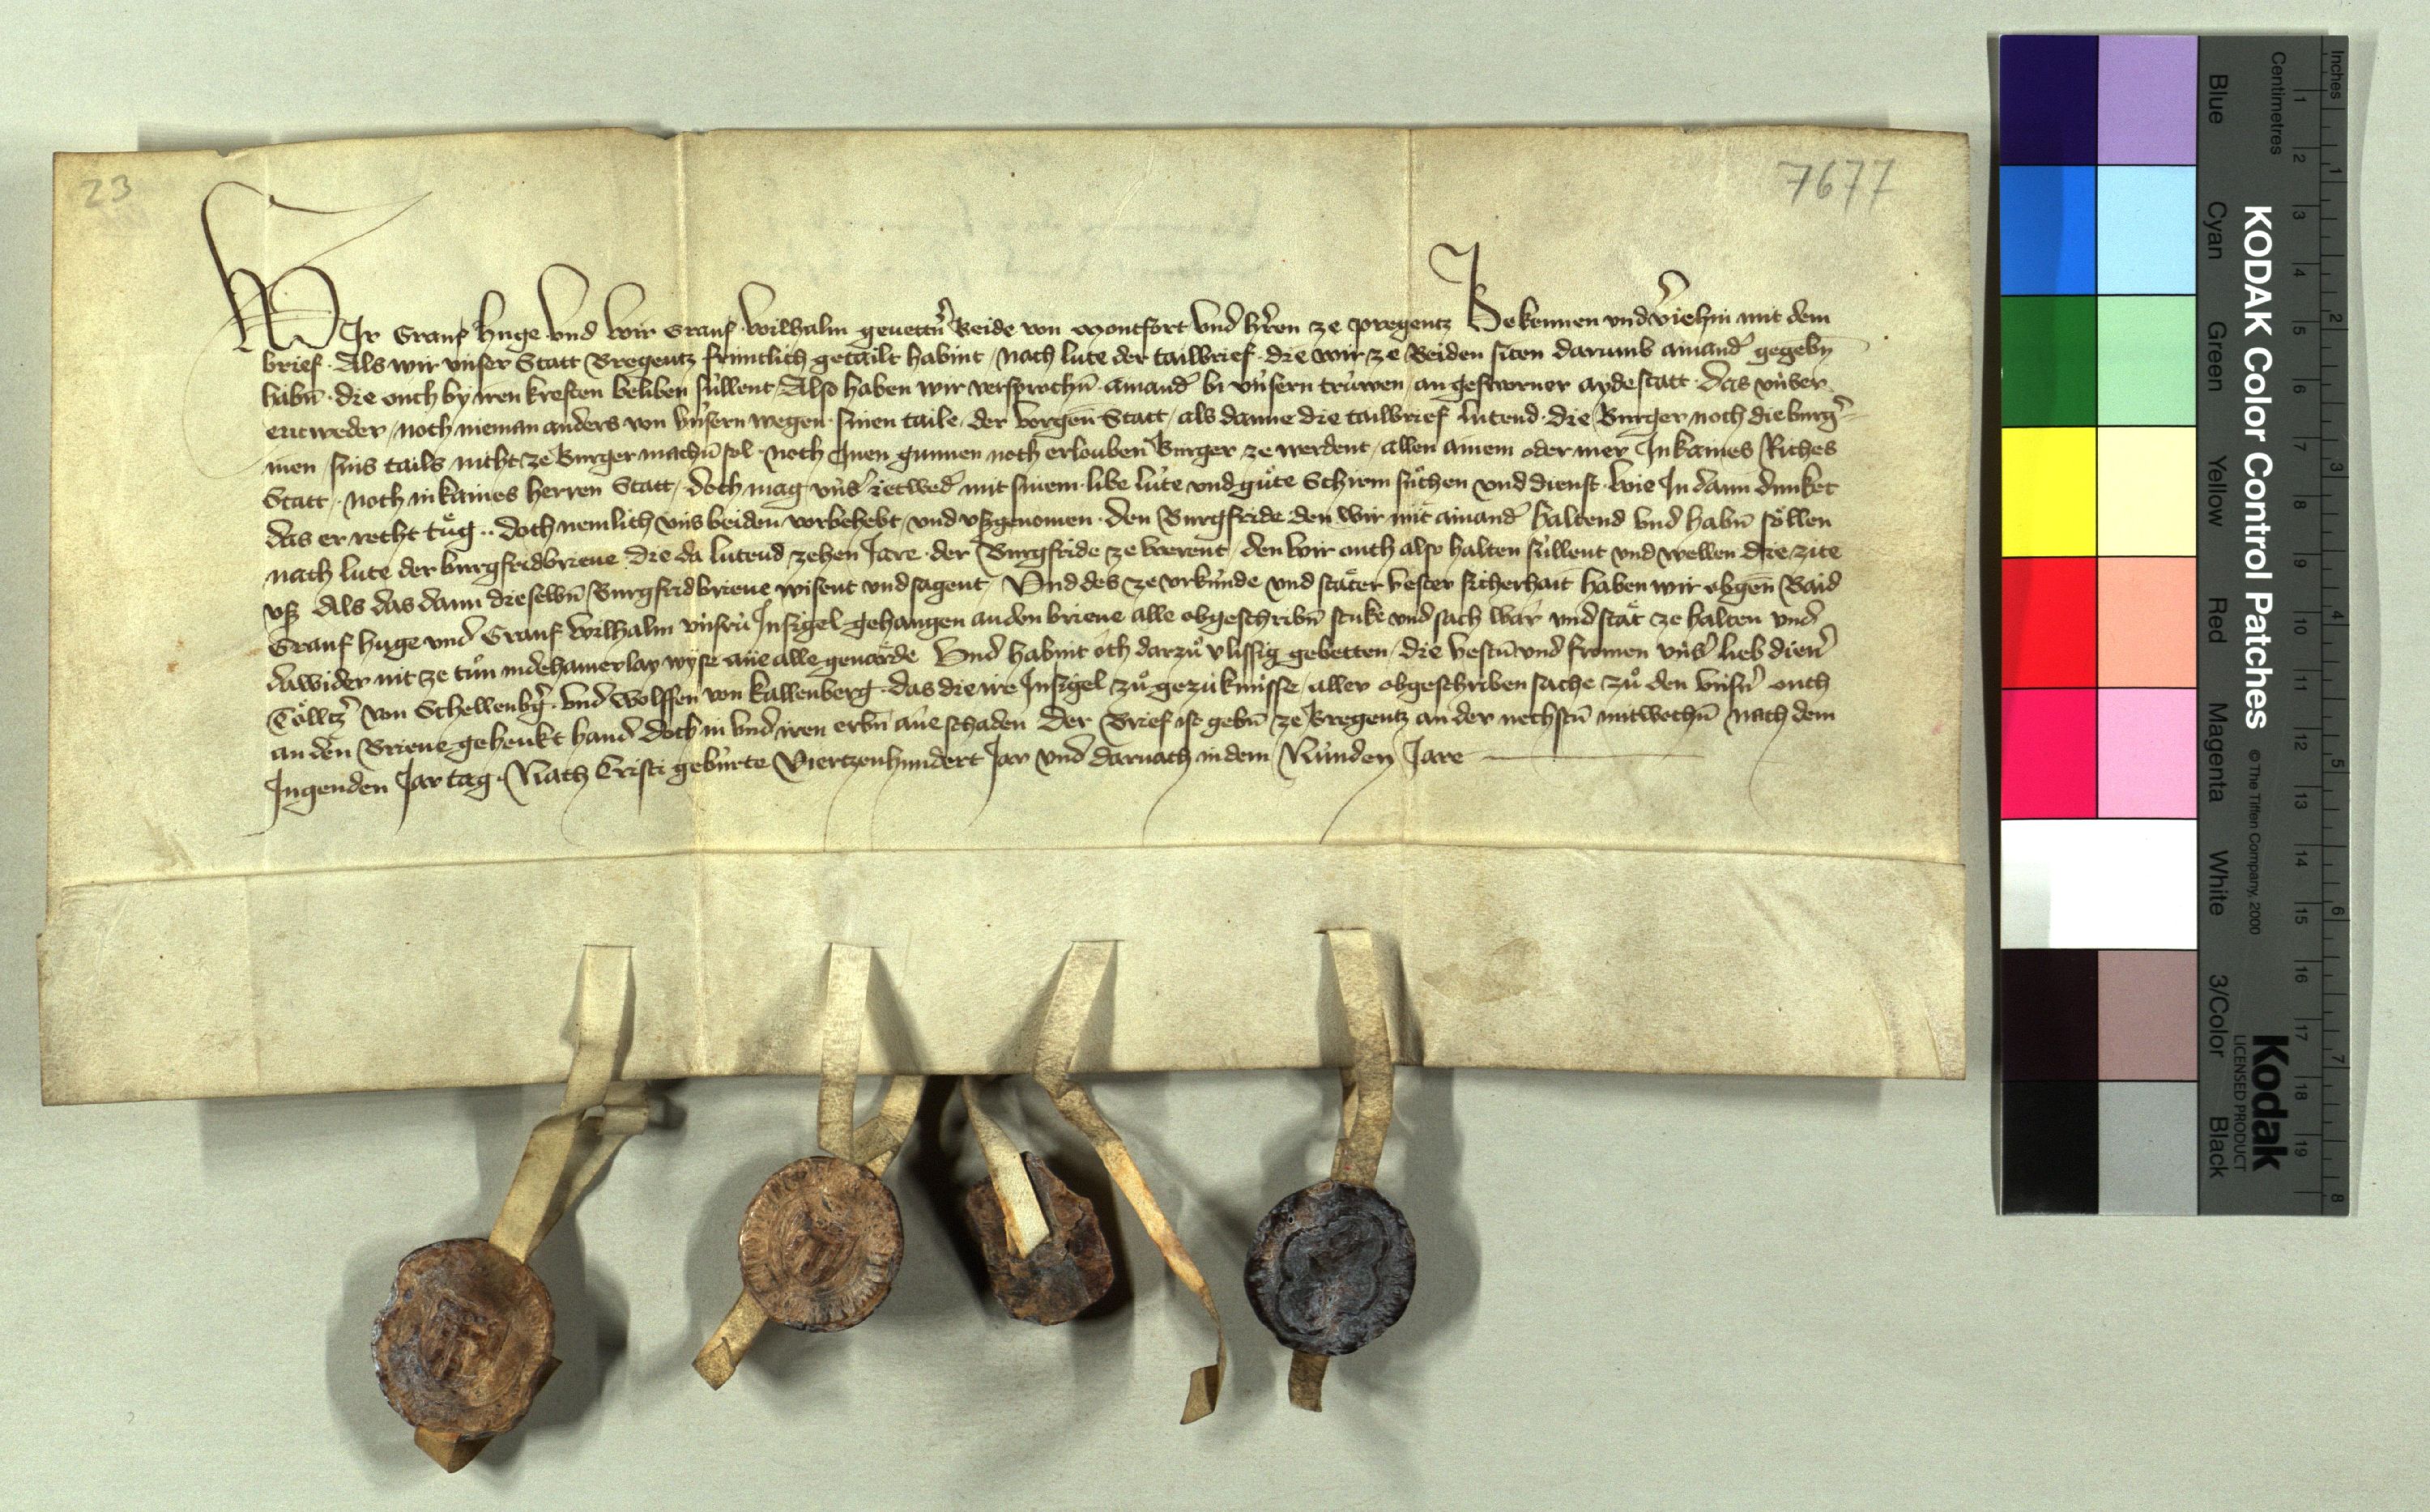 23
7677
WIr Grauf Huge Vnd Wir Grauf Wilhalm geuettr̄ Beide von Montfort Vnd hr̄ren ze Pregentz Bekennen vnd v̄iehin mit dem
brief · Als wir vnser Statt Bregentz fruntlich getailt habint / nach lute der tailbrief · die wir ze Beiden siten darumb ainand̄ gegebn̄
habn̄ · die ouch by iren kreften beliben süllent / Also haben wir versprochn̄ ainand̄ bi vnsern trüwen an geswerner aydestatt · das vnser
entweder / noch nieman anders von vnsern wegen · sinen taile / der vorgen̄ Statt / als danne die tailbrief lutend · die Burger noch die burḡ
inen / sins tails nicht ze Burger machn̄ sol · noch Inen gunnen noch erlouben Burger ze werdent / allen ainem oder mer In kaines Riches
Statt / noch in kaines herren Statt / doch mag vns̄ ietwed̄ mit sinem · libe lüte vnd gůte Schirm sůchen vnd dienst · wie In dann dunket
das er recht tůg ·· doch nemlich vns beiden vorbehebt / vnd vßgenomen · den Burgfride den wir mit ainand̄ haltend vnd habn̄ söllen
nach lute der burgfridbrieue die da lutend zehen Jare · der Burgfride ze werent / den wir ouch also halten süllent vnd wellen die zite
vß Als das dann dieselbn̄ Burgfridbrieue wisent vnd sagent / Vnd des ze vrkünde vnd stäter vester sicherhait haben wir obgen̄ Baid
Grauf Huge vnd Grauf Wilhalm vnsrü Insigel gehangen an den brieue alle obgeschribn̄ stuke vnd sach war vnd stät ze halten vnd
dawider nit ze tůn in dehainerlay wyse ane alle geuärde Vnd habint och darzů vlissig gebetten / die vestn̄ vnd fromen vns̄ lieb dien̄
Tölltz̄ von Schellenbḡ · vnd Wolffen von kallenberg · das die ire Insigel / zů gezükniisse / aller obgeschriben sache / zů den vnsn̄ ouch
an den Brieue gehenkt hand doch in vnd iren erbn̄ ane schaden Der Brief ist gebn̄ ze Bregentz an der nechstn̄ mitwochn̄ nach dem
Ingenden Jar tag · Nach Cristi gebürte Viertzenhundert Jar vnd darnach in dem Nünden Jare
Inches
Centimetres
1 2 3 4 5 6 7 8 9 10 11 12 13 14 15 16 17 18 19
1 2 3 4 5 6 7 8
KODAK Color Control Patches
© The Tiffen Company, 2000
Kodak
LICENSED PRODUCT
Blue Cyan Green Yellow Red Magenta White 3/Color Black